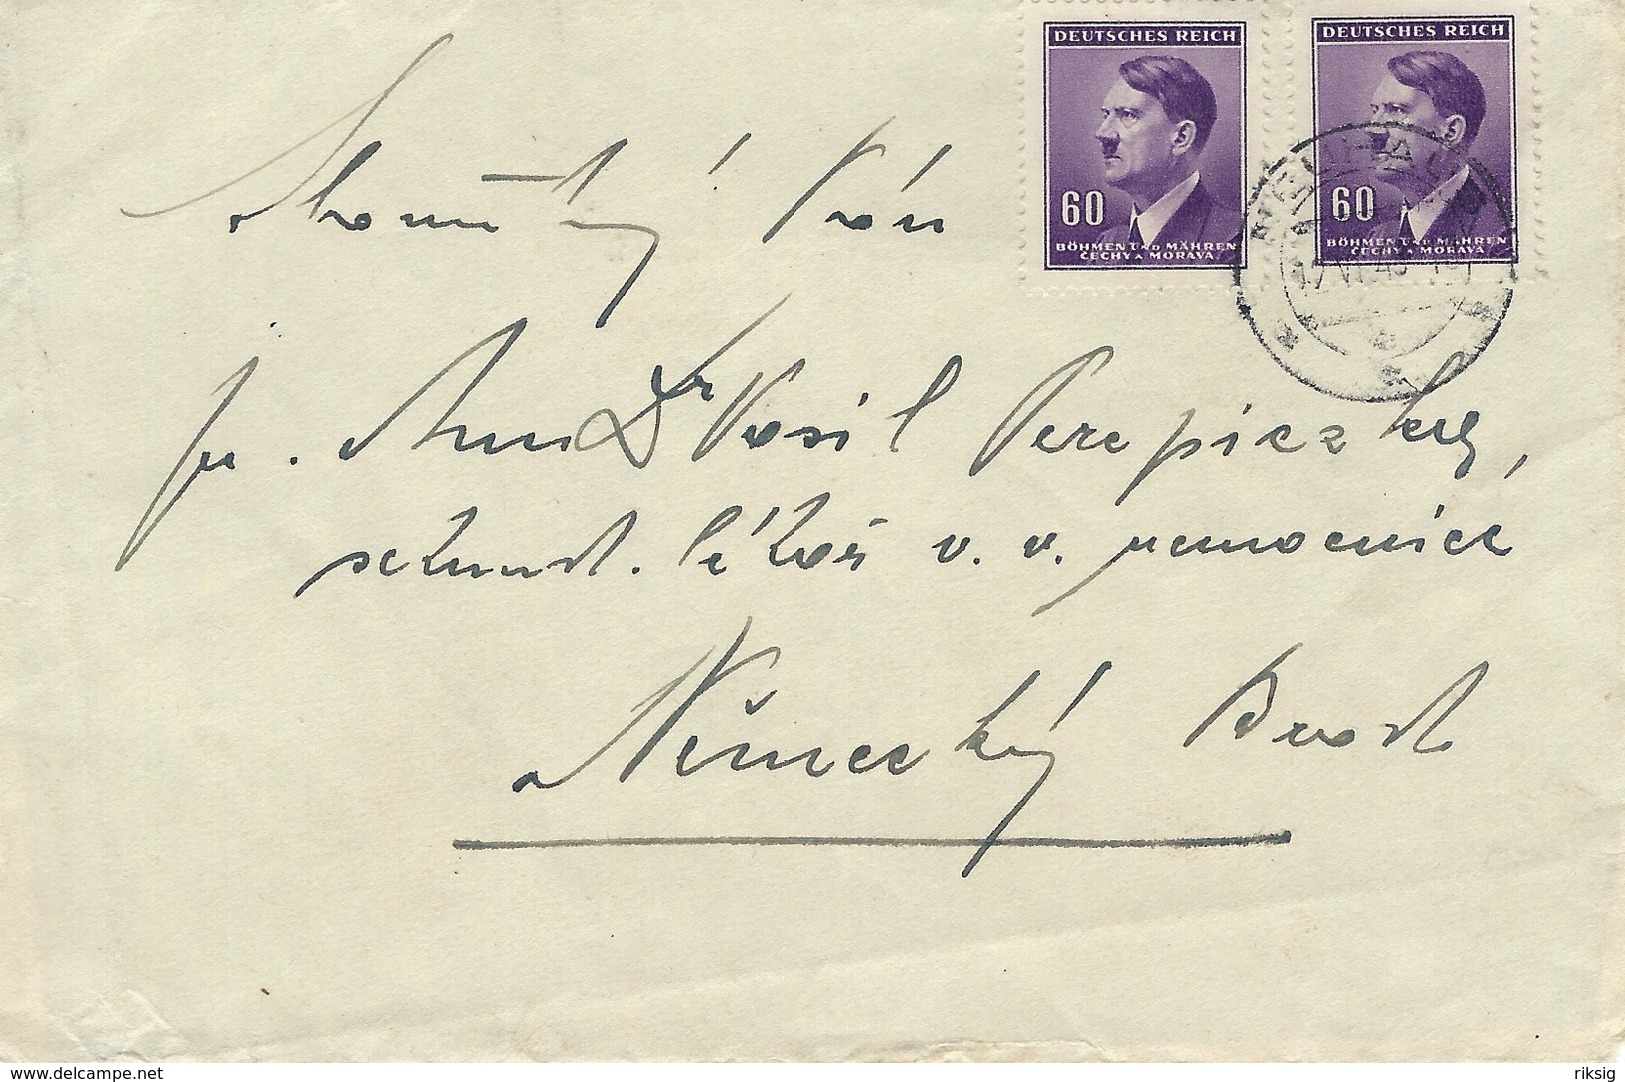 DEUTSCHES REICH
60
BÖHMEN UND MÄHREN
ČECHY A MORAVA
DEUTSCHES REICH
60
BÖHMEN UND MÄHREN
ČECHY A MORAVA
NEUHAUS
Pán
p. MUDr Vasil Perepiczkey,
sekund. lékař v. v. nemocnice
Německý Brod
www.delcampe.net
riksig